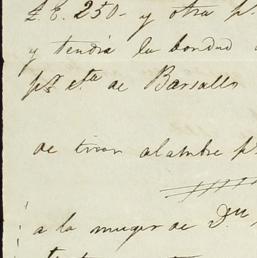 £E. 250- y otra p
y tendrá la bondad
pr. cta de Barsallo
de tirar alambre p
a la muger de Dn